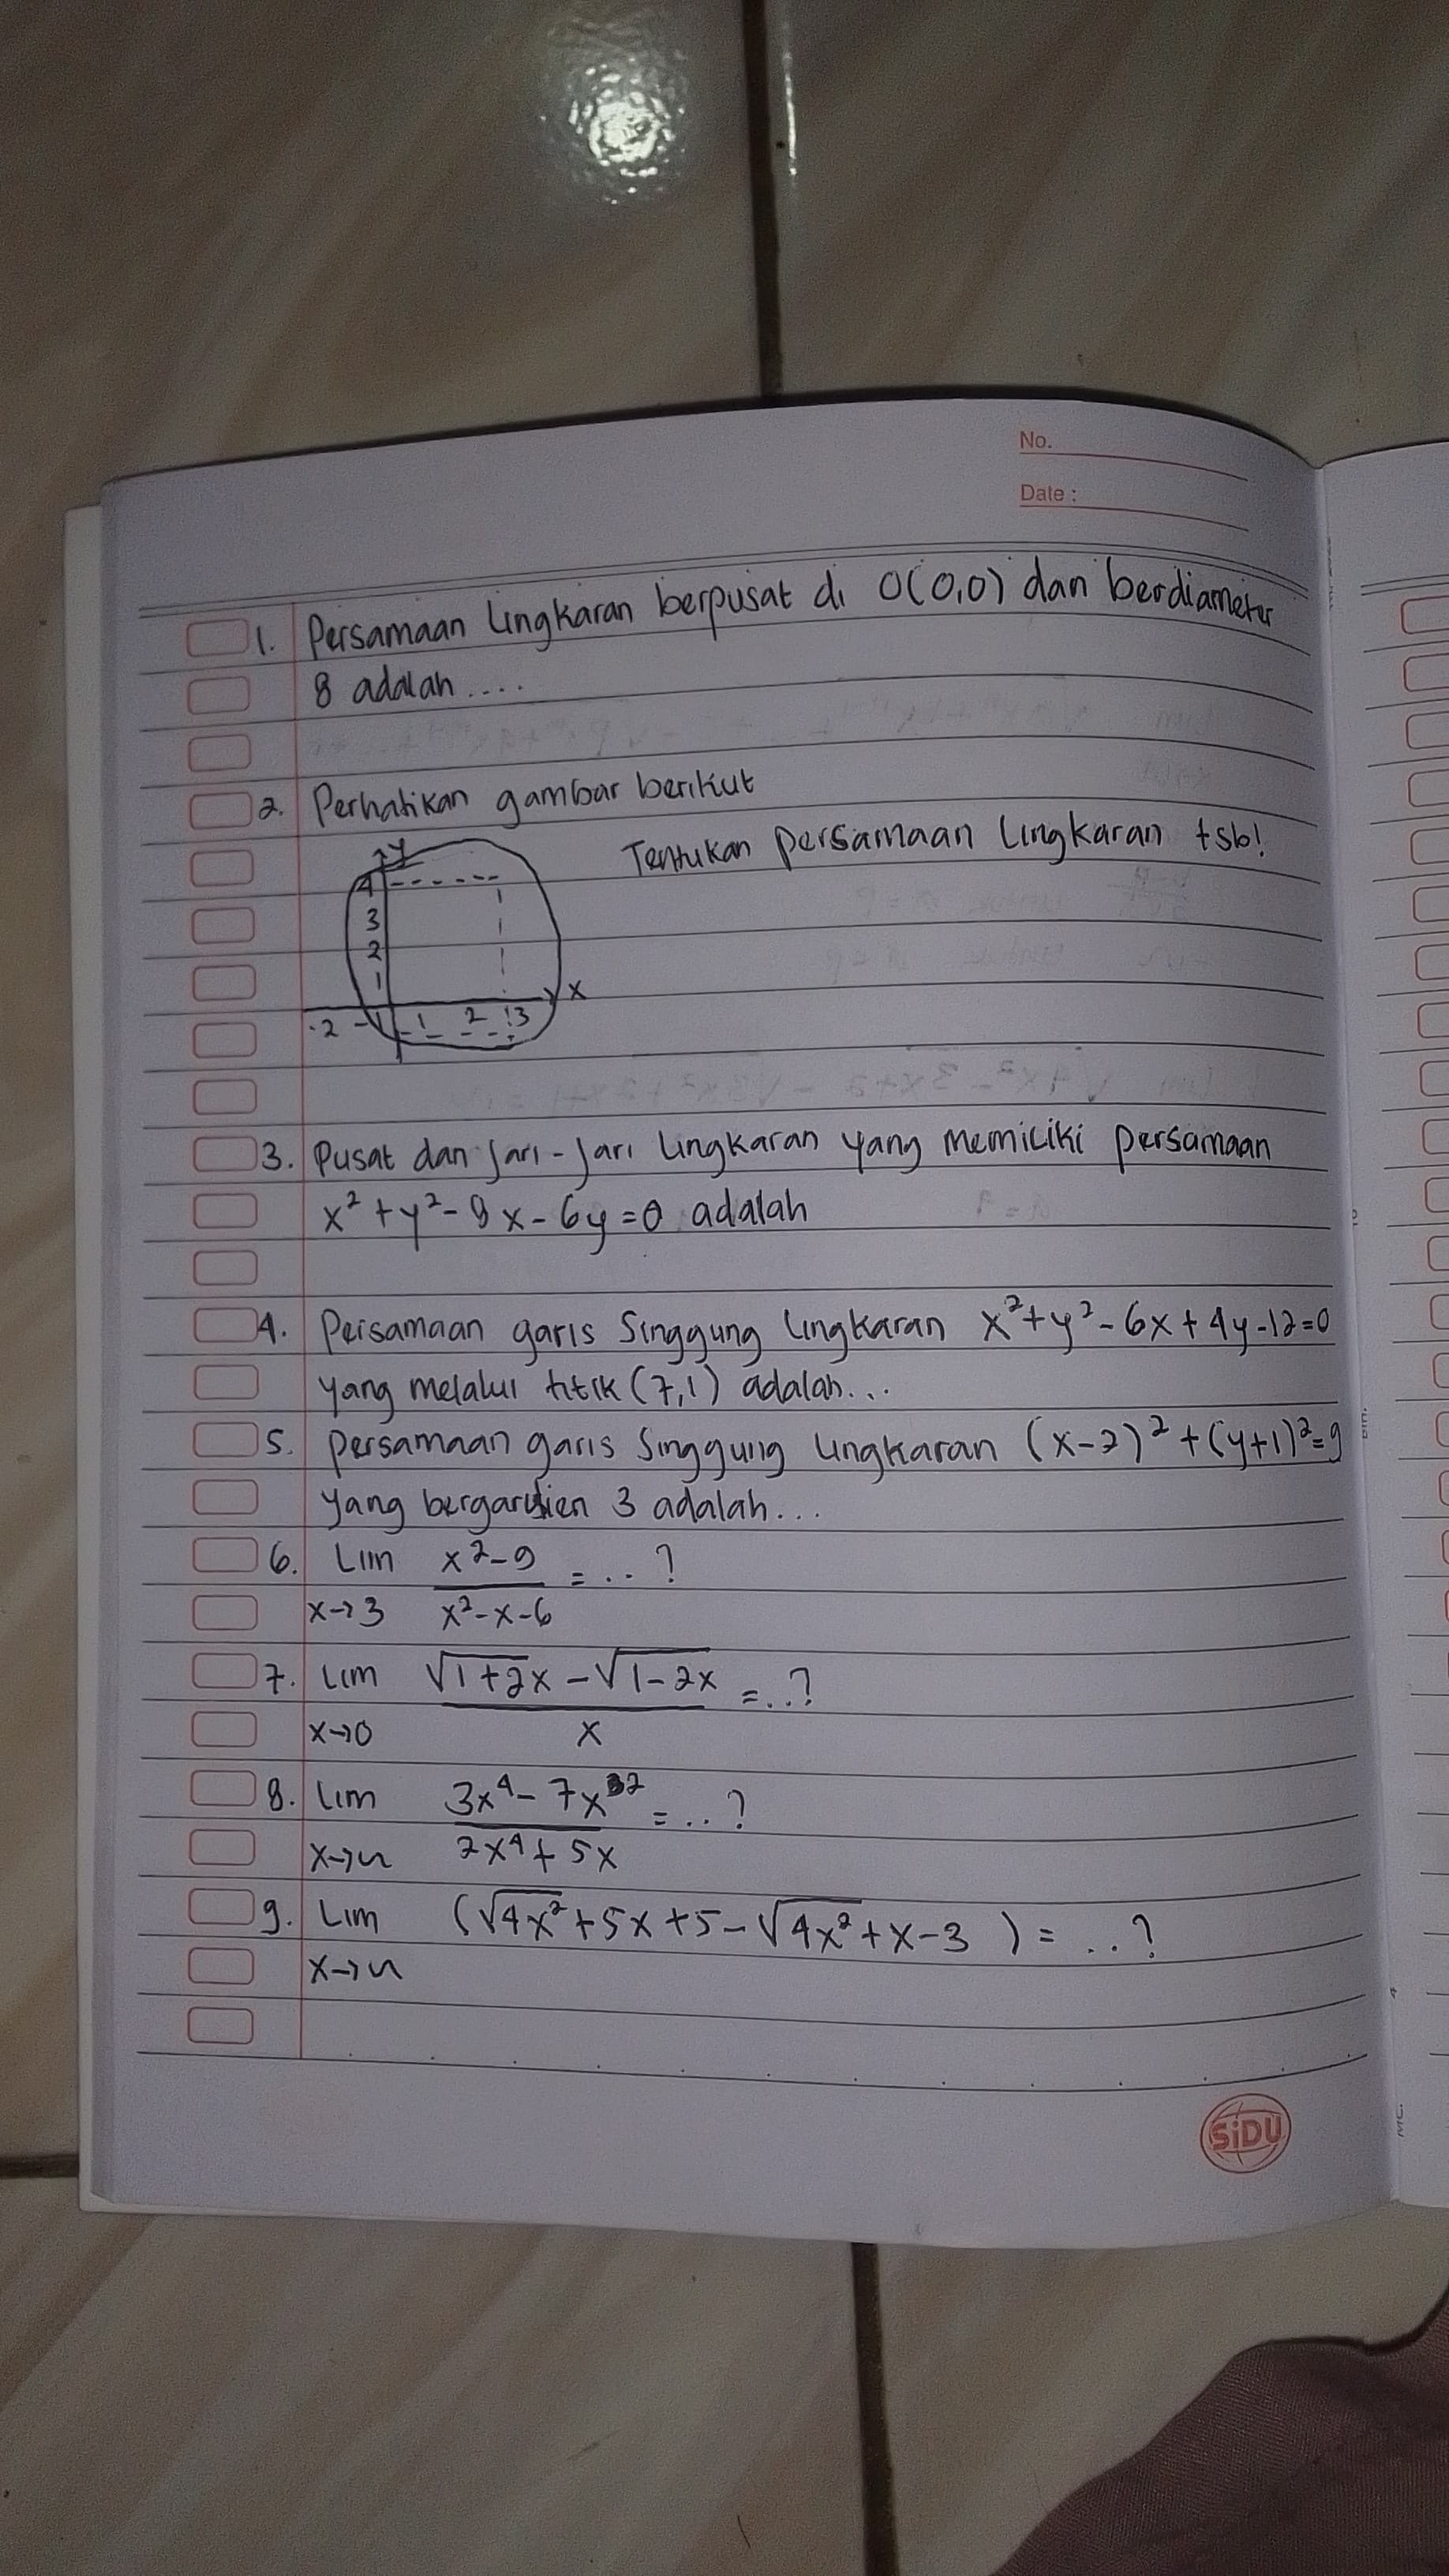 No.
Date :
1. Persamaan lingkaran berpusat di O(0,0) dan berdiameter
8 adalah ....
2. Perhatikan gambar berikut
Tentukan persamaan lingkaran tsb!
y
4
3
2
1
x
-2 -1 1 2 3
3. Pusat dan jari-jari lingkaran yang memiliki persamaan
x² + y² - 8x - 6y = 0 adalah
4. Persamaan garis singgung lingkaran x² + y² - 6x + 4y - 12 = 0
yang melalui titik (7,1) adalah...
5. persamaan garis singgung lingkaran (x-2)² + (y+1)² = 9
yang bergardien 3 adalah...
6. Lim x² - 9 = ..?
x→3 x² - x - 6
7. Lim √1+2x - √1-2x = ..?
x→0 x
8. Lim 3x⁴ - 7x² = ..?
x→~ 2x⁴ + 5x
9. Lim (√4x² + 5x + 5 - √4x² + x - 3 ) = ..?
x→~
SiDU